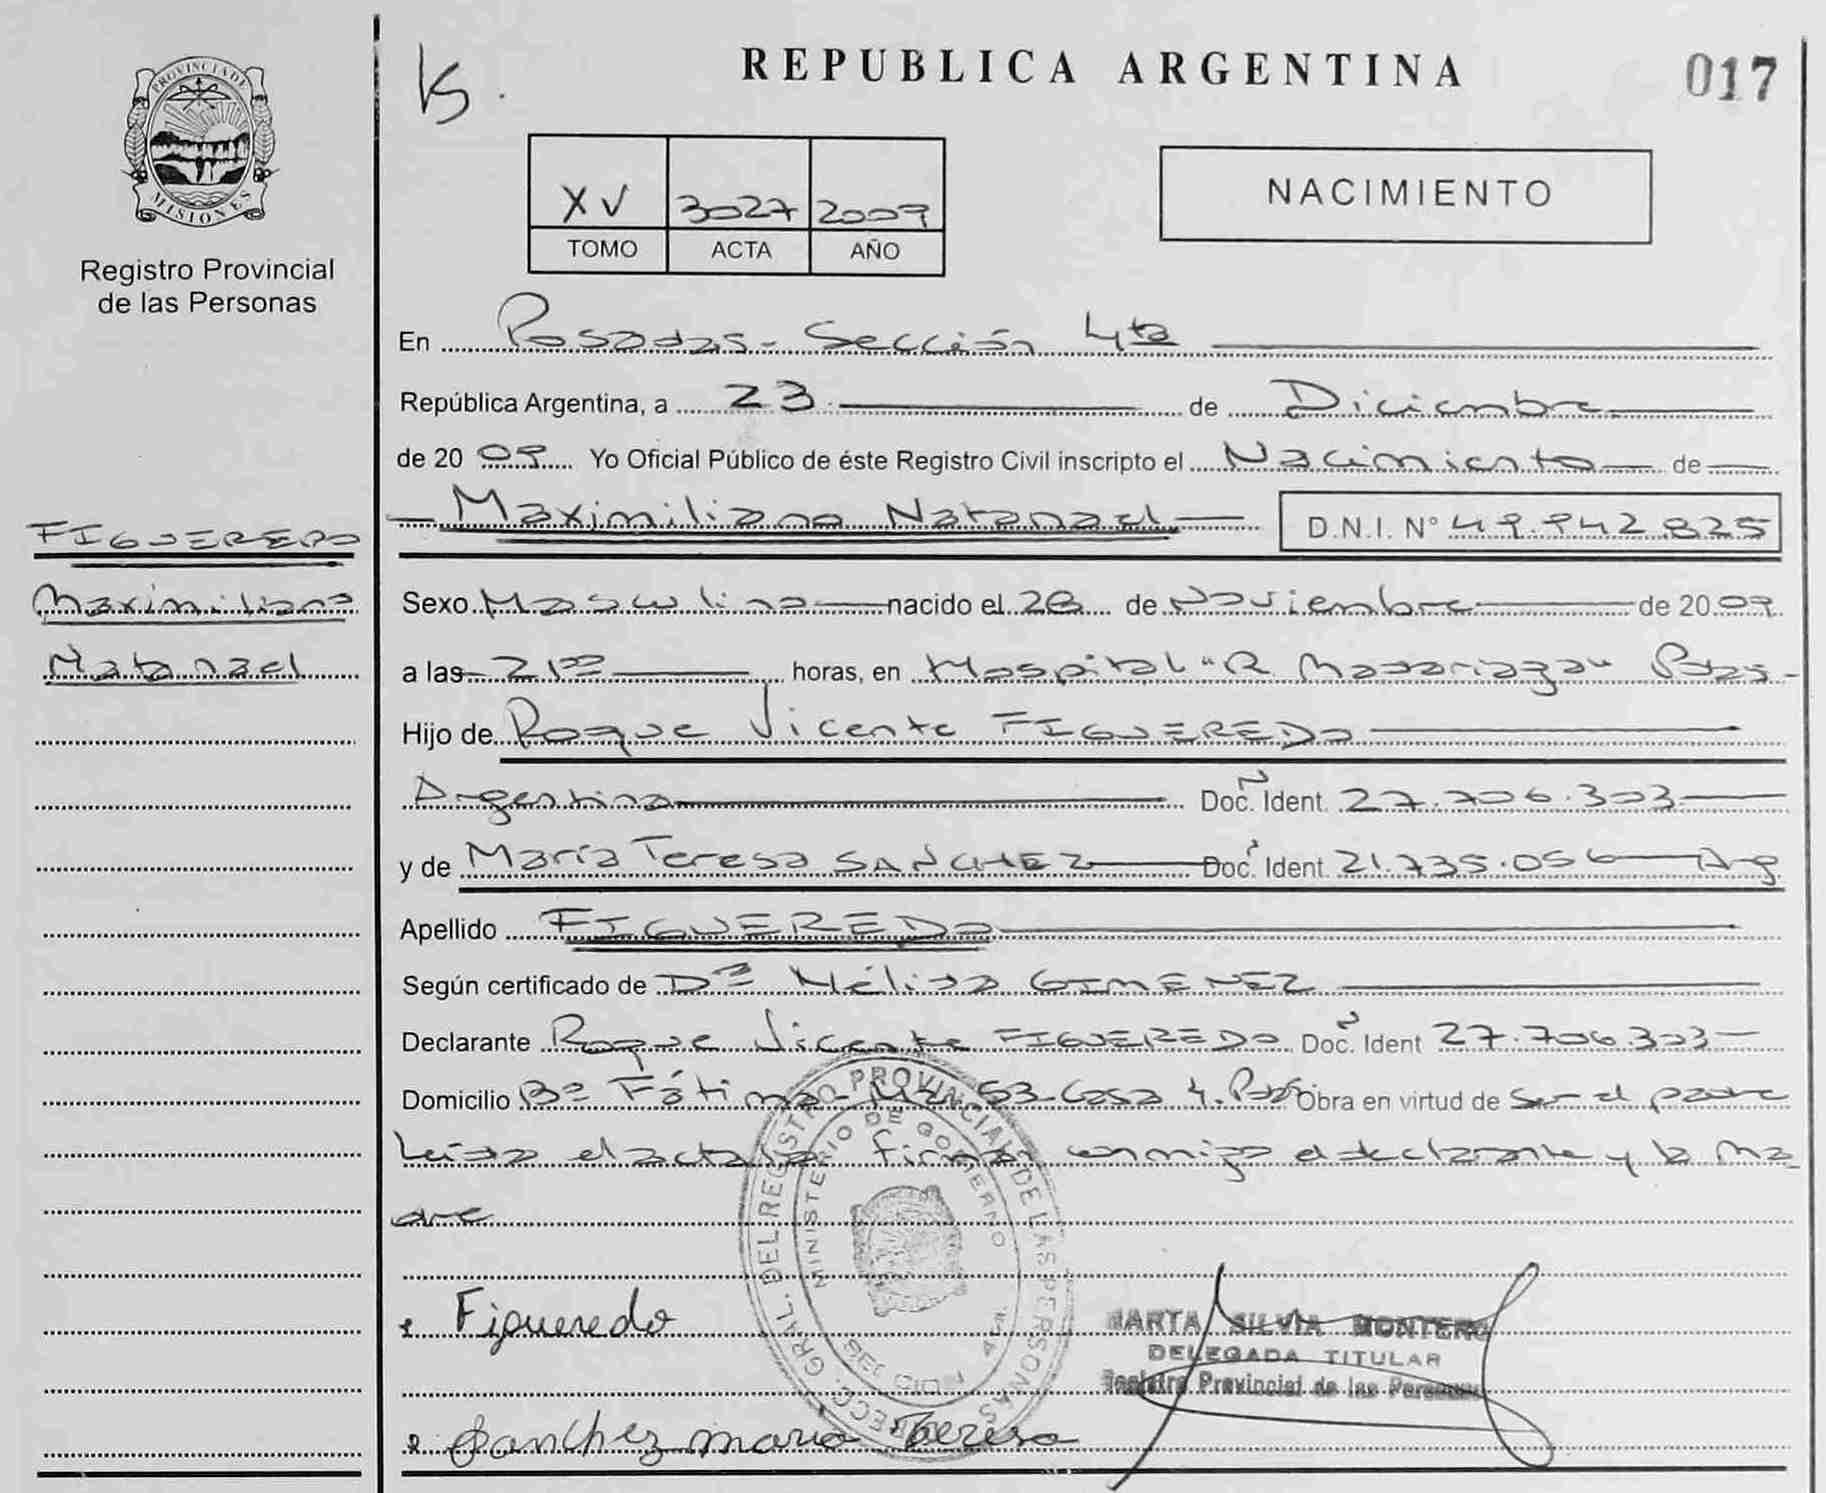 REPUBLICA ARGENTINA
017
PROVINCIA DE
MISIONES
Registro Provincial
de las Personas
XV 3027 2009
TOMO ACTA AÑO
NACIMIENTO
En Posadas - Sección 4ta
República Argentina, a 23 de Diciembre
de 20 09 Yo Oficial Público de éste Registro Civil inscripto el Nacimiento de
Maximiliano Natanael D.N.I. N° 49.942.825
FIGUEREDO
Maximiliano
Natanael
Sexo Masculino nacido el 28 de Noviembre de 20 09
a las 21 00 horas, en Hospital "R. Madariaga" Pdas-
Hijo de Roque Vicente FIGUEREDO
Argentino Doc. Ident. 27.706.303
y de María Teresa SANCHEZ Doc. Ident. 21.735.056 Arg
Apellido FIGUEREDO
Según certificado de Dra Mélida GIMENEZ
Declarante Roque Vicente FIGUEREDO Doc. Ident 27.706.303
Domicilio Bº Fátima Mz. 53 Casa 4. Pdas Obra en virtud de Ser el padre
Leída el acta la firman conmigo el declarante y la ma
dre
Figueredo
MARTA SILVIA MONTERO
DELEGADA TITULAR
Registro Provincial de las Personas
Sanchez maria Tereresa
DIRECC. GRAL. DEL REGISTRO PROVINCIAL DE LAS PERSONAS
MINISTERIO DE GOBIERNO
SECCION 4ta.